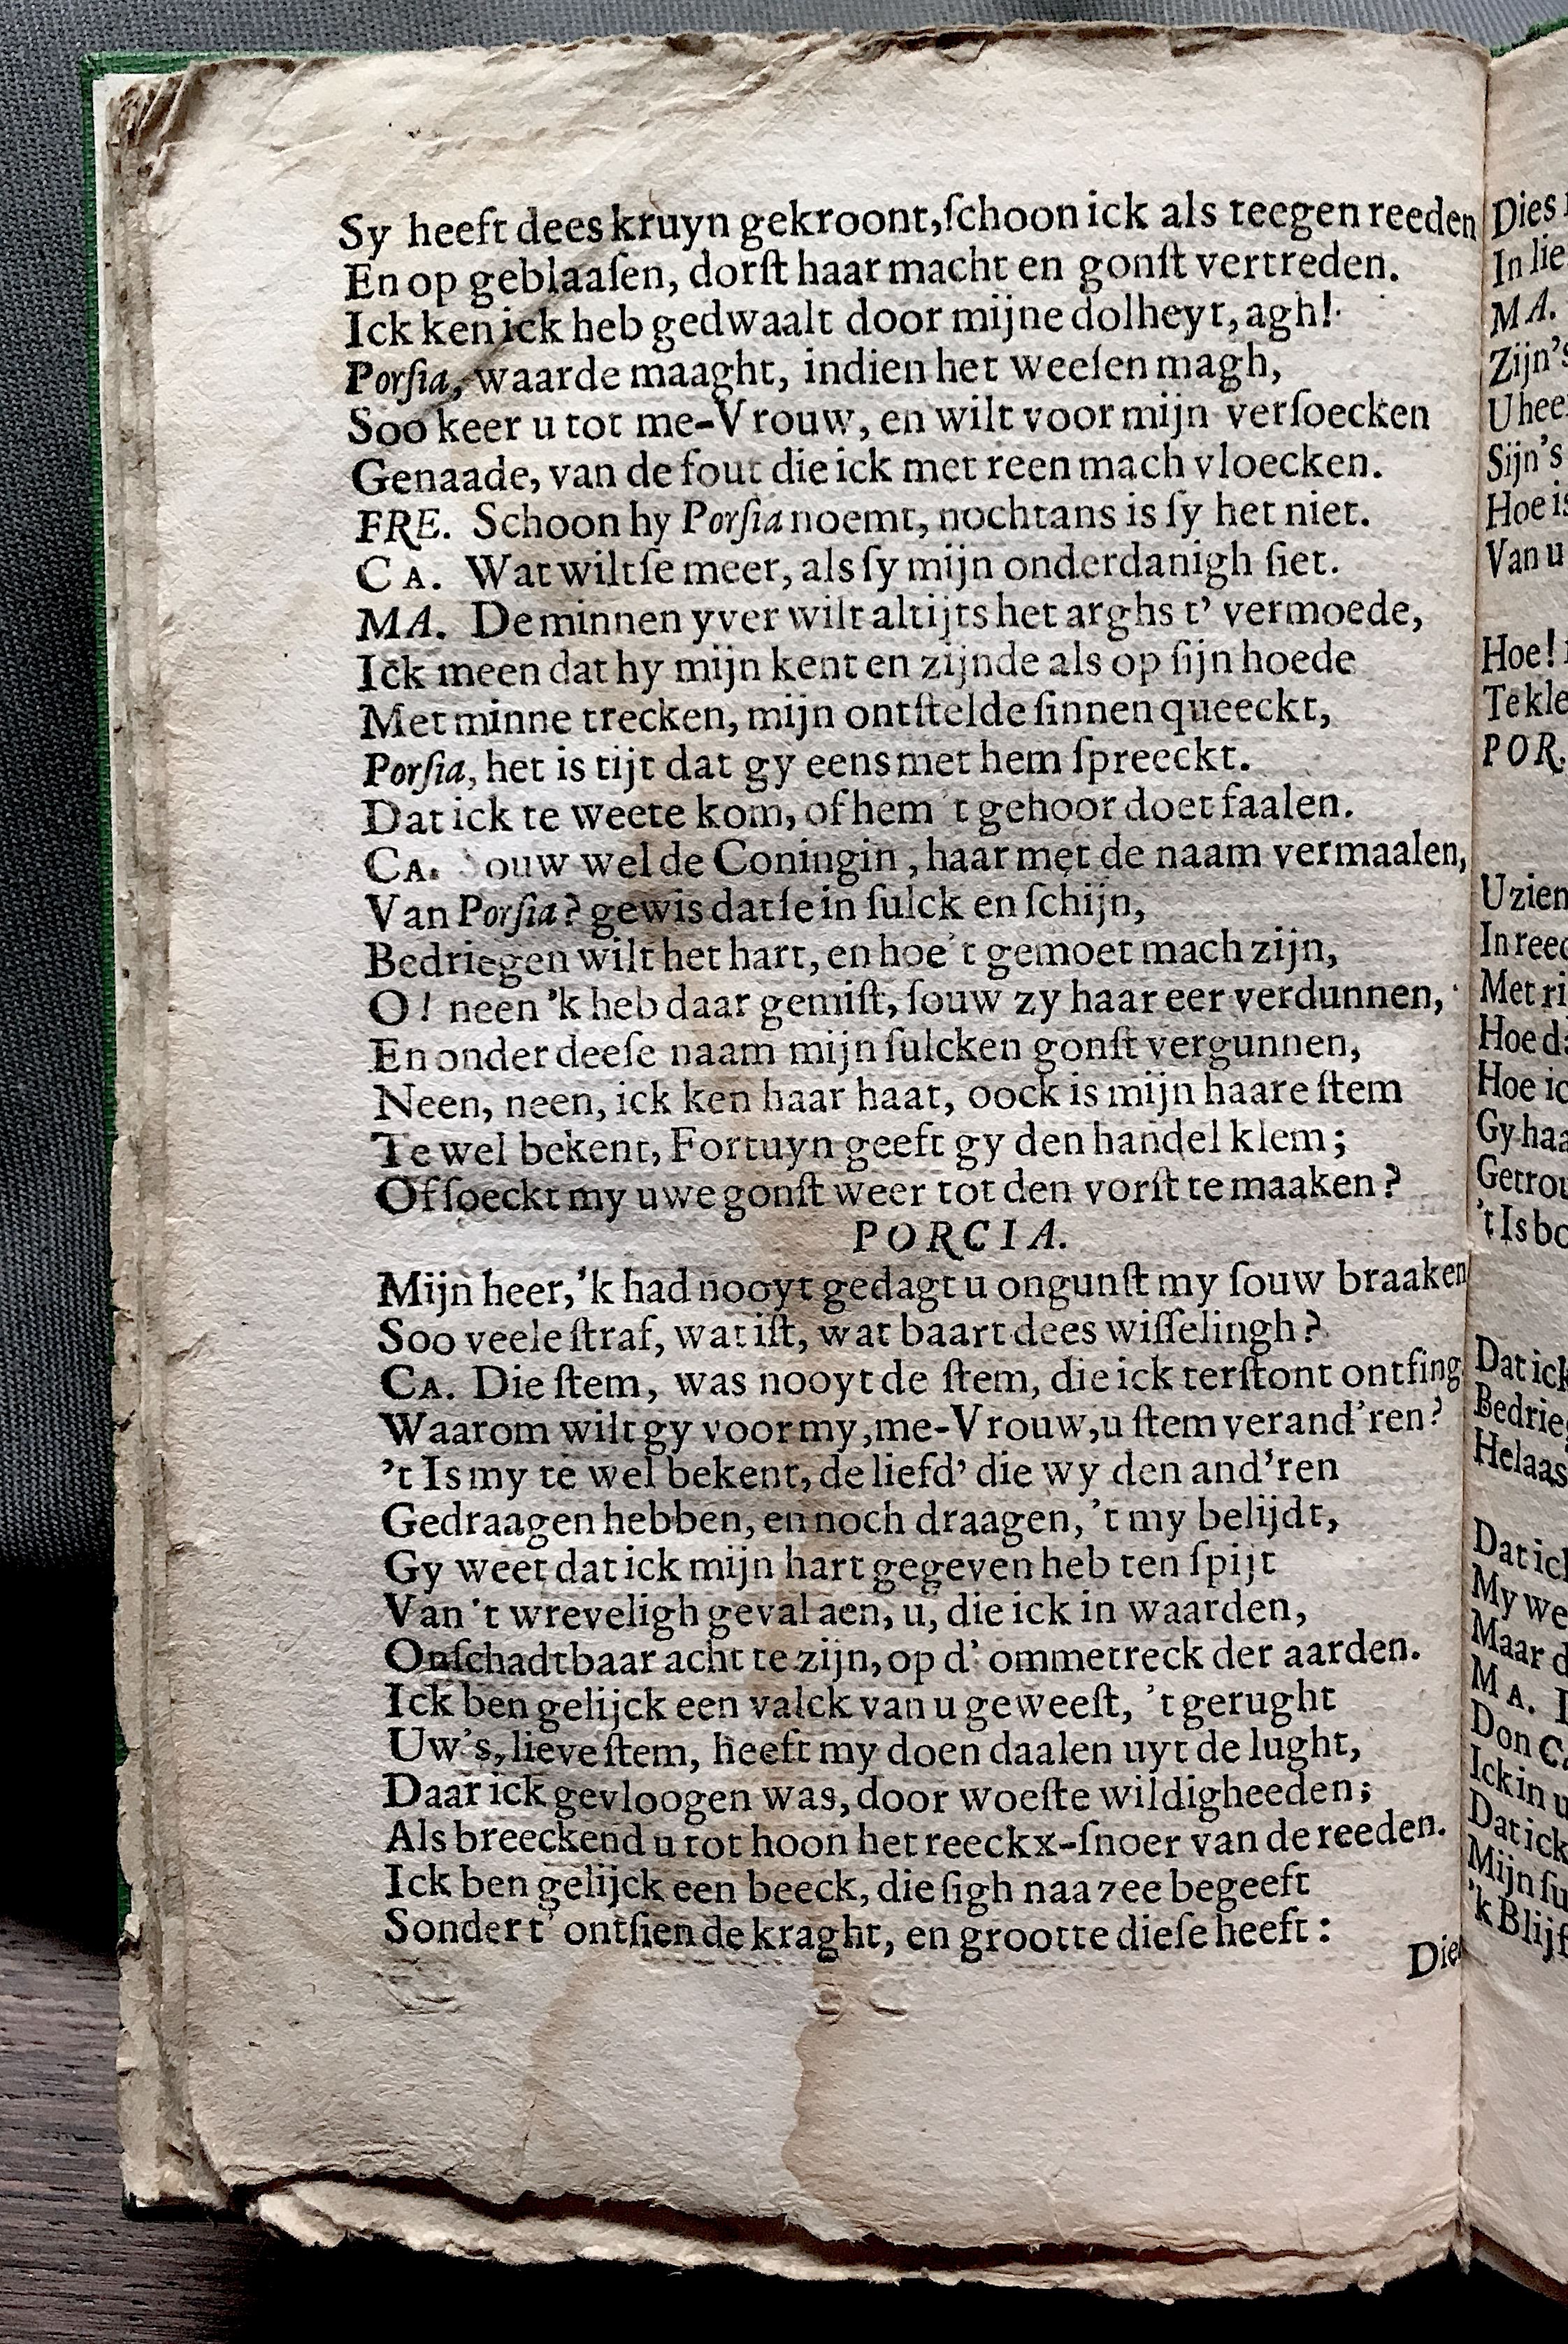 Sy heeft dees kruyn gekroont, ſchoon ick als teegen reeden
En op geblaaſen, dorſt haar macht en gonſt vertreden.
Ick ken ick heb gedwaalt door mijne dolheyt, agh!
Porſia, waarde maaght, indien het weeſen magh,
Soo keer u tot me-Vrouw, en wilt voor mijn verſoecken
Genaade, van de fout die ick met reen mach vloecken.
FRE. Schoon hy Porſia noemt, nochtans is ſy het niet.
CA. Wat wiltſe meer, als ſy mijn onderdanigh ſiet.
MA. De minnen yver wilt altijts het arghs t' vermoede,
Ick meen dat hy mijn kent en zijnde als op ſijn hoede
Met minne trecken, mijn ontſtelde ſinnen queeckt,
Porſia, het is tijt dat gy eens met hem ſpreeckt.
Dat ick te weete kom, of hem 't gehoor doet faalen.
CA. Souw wel de Coningin, haar met de naam vermaalen,
Van Porſia? gewis datſe in ſulck en ſchijn,
Bedriegen wilt het hart, en hoe't gemoet mach zijn,
O! neen 'k heb daar gemiſt, ſouw zy haar eer verdunnen,
En onder deeſe naam mijn ſulcken gonſt vergunnen,
Neen, neen, ick ken haar haat, oock is mijn haare ſtem
Te wel bekent, Fortuyn geeft gy den handel klem;
Of ſoeckt my uwe gonſt weer tot den vorſt te maaken?
PORCIA.
Mijn heer, 'k had nooyt gedagt u ongunſt my ſouw braaken
Soo veele ſtraf, wat iſt, wat baart dees wiſſelingh?
CA. Die ſtem, was nooyt de ſtem, die ick terſtont ontfing
Waarom wilt gy voor my, me-Vrouw, u ſtem verand'ren?
't Is my te wel bekent, de liefd' die wy den and'ren
Gedraagen hebben, en noch draagen, 't my belijdt,
Gy weet dat ick mijn hart gegeven heb ten ſpijt
Van 't wreveligh geval aen, u, die ick in waarden,
Onſchadtbaar acht te zijn, op d' ommetreck der aarden.
Ick ben gelijck een valck van u geweeſt, 't gerught
Uw's, lieve ſtem, heeft my doen daalen uyt de lught,
Daar ick gevloogen was, door woeſte wildigheeden;
Als breeckend u tot hoon het reeckx-ſnoer van de reeden.
Ick ben gelijck een beeck, die ſigh naa zee begeeft
Sonder t' ontſien de kraght, en grootte dieſe heeft:
Dies
In lie
MA.
Zijn's
U hee
Sijn's
Hoe is
Van u
Hoe!
Te kle
POR.
U zien
In reed
Met ri
Hoe da
Hoe ic
Gy haa
Getrou
't Is bo
Dat ick
Bedrieg
Helaas
Dat ick
My we
Maar d
MA.
Don Ca
Ick in u
Dat ick
Mijn ſu
'k Blijf